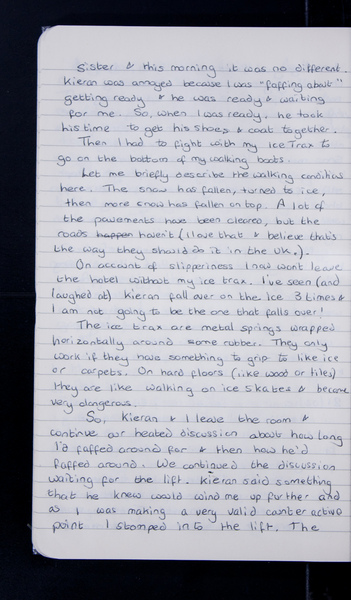 Sister & this morning it was no different.
Kieran was annoyed because I was "faffing about"
getting ready & he was ready & waiting
for me. So, when I was ready, he took
his time to get his shoes & coat together.
Then I had to fight with my Ice Trax to
go on the bottom of my walking boots.
Let me briefly describe the walking conditions
here. The snow has fallen, turned to ice,
then more snow has fallen on top. A lot of
the pavements have been cleared, but the
roads happen haven't (I love that & believe that's
the way they should do it in the UK.).
On account of slipperiness I now wont leave
the hotel without my ice trax. I've seen (and
laughed at) Kieran fall over on the Ice 3 times &
I am not going to be the one that falls over!
The ice trax are metal springs wrapped
horizontally around some rubber. They only
work if they have something to grip to like ice
or carpets. On hard floors (like wood or tiles)
they are like walking on ice skates & become
very dangerous.
So, Kieran & I leave the room &
continue our heated discussion about how long
I'd faffed around for & then how he'd
faffed around. We continued the discussion
waiting for the lift. Kieran said something
that he knew would wind me up further and
as I was making a very valid counter active
point I stomped in to the lift. The